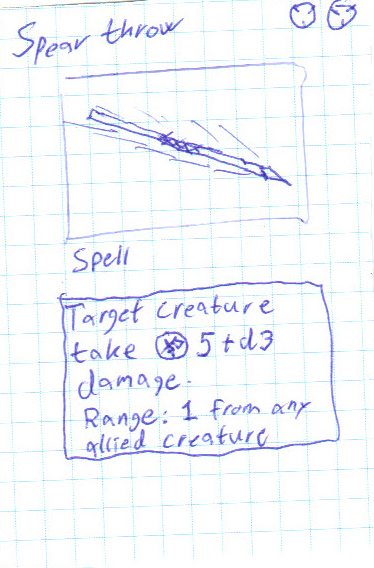 Spear throw
Spell
Target creature
take 5+d3
damage.
Range: 1 from any
allied creature